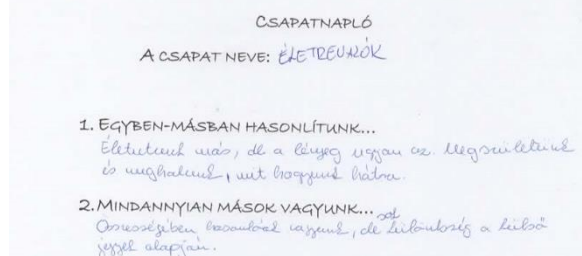 CSAPATNAPLÓ
A CSAPAT NEVE: ÉLETREVALÓK
1. EGYBEN-MÁSBAN HASONLÍTUNK...
Életutunk más, de a lényeg ugyan az. Megszületünk
és meghalunk, mit hagyunk hátra.
2. MINDANNYIAN MÁSOK VAGYUNK...
Összességében hasonlóak vagyunk, de sok különbség a külső
jegyek alapján.